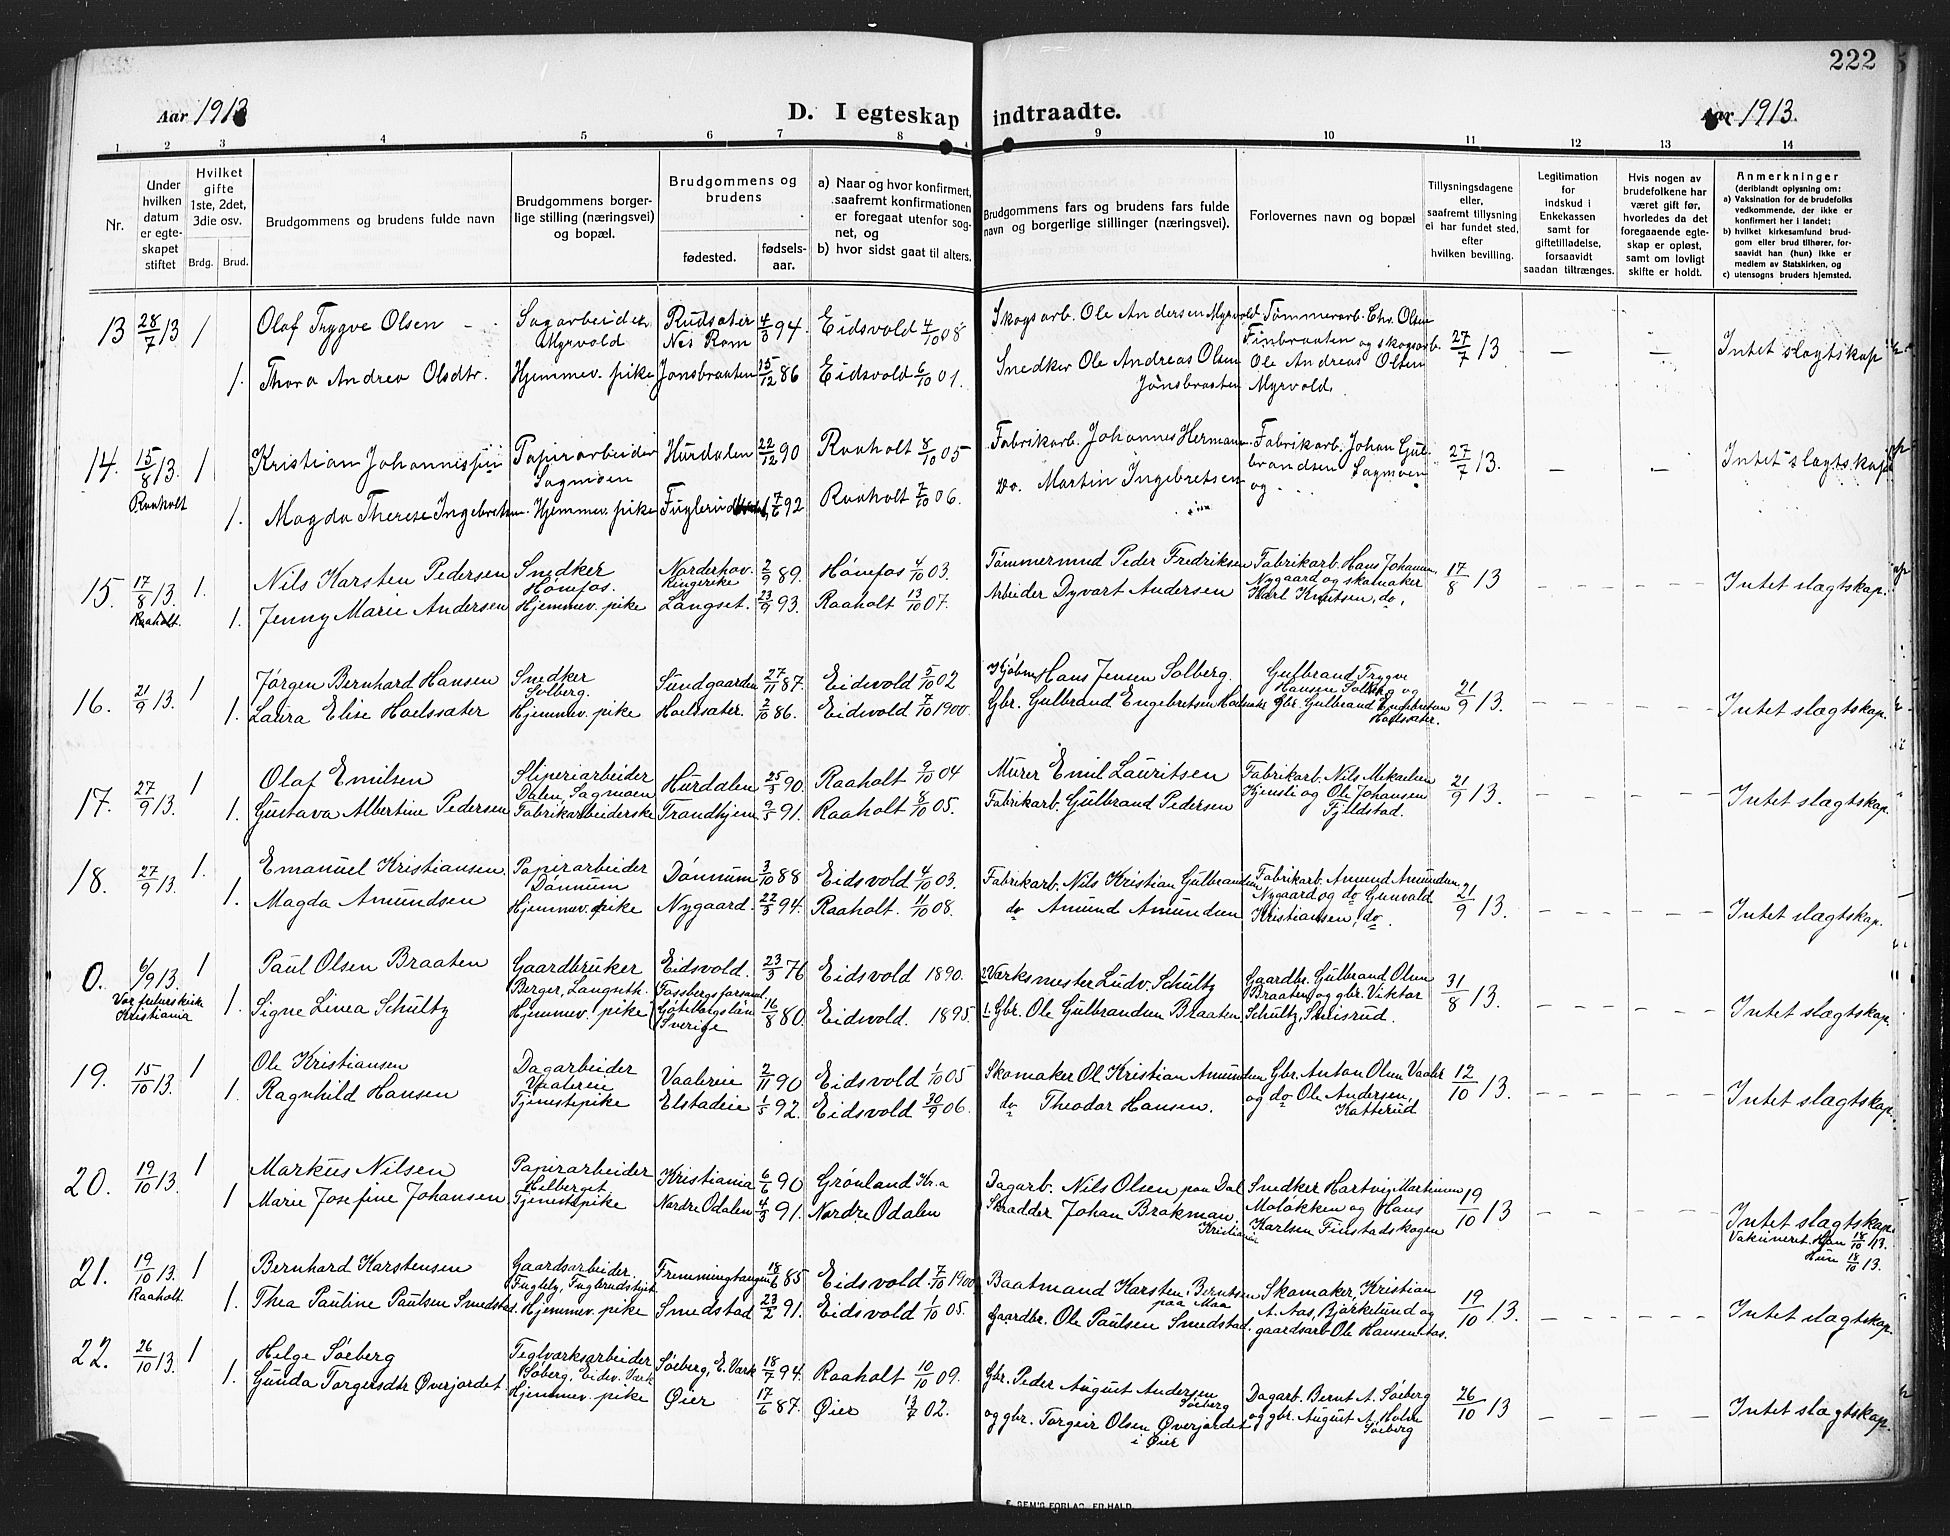 222
Aar 1913
D. I egteskap indtraadte.
Aar 1913.
1 2 3 4 5 6 7 8 9 10 11 12 13 14
Nr.
Under hvilken datum er egteskapet stiftet
Hvilket gifte 1ste, 2det, 3die osv.
Brdg. Brud.
Brudgommens og brudens fulde navn
Brudgommens borgerlige stilling (næringsvei) og bopæl.
Brudgommens og brudens
fødested.
fødselsaar.
a) Naar og hvor konfirmert, saafremt konfirmationen er foregaat utenfor sognet, og
b) hvor sidst gaat til alters.
Brudgommens fars og brudens fars fulde navn og borgerlige stillinger (næringsvei).
Forlovernes navn og bopæl
Tillysningsdagene eller, saafremt tillysning ei har fundet sted, efter hvilken bevilling.
Legitimation for indskud i Enkekassen samt for giftetilladelse, forsaavidt saadan tiltrænges.
Hvis nogen av brudefolkene har været gift før, hvorledes da det foregaaende egteskap er opløst, samt om lovlig skifte er holdt.
Anmerkninger
(deriblandt oplysning om:
a) Vaksination for de brudefolks vedkommende, der ikke er konfirmert her i landet;
b) hvilket kirkesamfund brudgom eller brud tilhører, forsaavidt han (hun) ikke er medlem av Statskirken, og
c) utensogns bruders hjemsted.
13 28/7 13 1 Olaf Trygve Olsen Sagarbeider Myrvold Rudsæter Nes Rom 4/3 94 Eidsvold 4/10 08 Skogsarb. Ole Andersen Myrvold Tømmerarb. Chr. Olsen Finbraaten og skogsarb. Ole Andreas Olsen Myrvold. 27/7 13 — — Intet slagtskap
1. Thora Andrea Olsdtr. Hjemmev. pike Jønsbraaten 15/12 86 Eidsvold 6/10 01. Snedker Ole Andreas Olsen Jønsbraaten
14. 15/8 13. Raaholt 1 Kristian Papirarbeider Sagmoen Hurdalen 22/12 90 Raaholt 8/10 05 Fabrikarb. Johannes Herman Fabrikarb. Johan Gulbrandsen Sagmoen og 27/7 13. — — Intet slagtskap
1. Magda Therese Ingebretsen Hjemmev. pike 7/6 92 Raaholt 7/10 06. Do. Martin Ingebretsen
15. 17/8 13. Raaholt. 1. Nils Karsten Pedersen Snedker Hønefos. Norderhov Ringerike 2/9 89. Hønefos 4/10 03. Tømmermnd Peder Fredriksen Fabrikarb. Hans Johansen, Nygaard og skomaker Karl Knutsen, do, 17/8 13 — — Intet slagtskap.
1. Jenny Marie Andersen Hjemmev. pike Langset. 23/9 93. Raaholt 13/10 07. Arbeider Dyvart Andersen
16. 21/9 13. 1 Jørgen Bernhard Hansen Snedker Solberg. Sundgaarden 27/11 87. Eidsvold 5/10 02 Kjøbm Hans Jensen Solberg. Gulbrand Trygve Hansen Solberg og Gbr. Gulbrand Engebretsen Hoelsæter. 21/9 13. — — Intet slagtskap.
1. Laura Elise Hoelsæter Hjemmev. pike Hoelsæter. 2/10 86. Eidsvold 7/10 1900. Gbr. Gulbrand Engebretsen
17. 27/9 13. 1 Olaf Emilsen Sliperiarbeider Dalen, Sagmoen Hurdalen 25/5 90. Raaholt 9/10 04 Murer Emil Lauritsen Fabrikarb. Nils Mikaelsen og Ole Johansen Fjeldstad. 21/9 13. — — Intet slagtskap.
1. Gustava Albertine Pedersen Fabrikarbeiderske Trondhjem 9/5 91. Raaholt 8/10 05. Fabrikarb. Gulbrand Pedersen
18. 27/9 13. 1. Emanuel Kristiansen. Papirarbeider Dønnum Dønnum 3/10 88 Eidsvold 4/10 03. Fabrikarb. Nils Kristian Gulbrandsen Fabrikarb. Amund Amundsen, Nygaard og do Gunvald Kristiansen, do. 21/9 13. — — Intet slagtskap.
1. Magda Amundsen Hjemmev. pike Nygaard. 22/3 94. Raaholt. 11/10 08. do Amund Amundsen
0. 6/9 13. Vor frelserskirke Kristiania 1 Paul Olsen Braaten Gaardbruker Berger, Langseth. Eidsvold. 23/3 76 Eidsvold 1890. 2. Værksmester Ludv. Schultz Gaardbr. Gulbrand Olsen Braaten og gbr. Viktor Schultz, 31/8 13. — — Intet slagtskap.
1. Signe Linea Schultz Hjemmev. pike Fossbergs forsaml. Gøteborgslän Sverige 16/8 80. Eidsvold. 1895. 1. Gbr. Ole Gulbrandsen Braaten.
19. 15/10 13. 1 Ole Kristiansen Dagarbeider Vaalereie Vaalereie 2/11 90 Eidsvold 1/10 05 Skomaker Ol Kristian Amundsen Gbr. Anton Olsen Vaaler og do Ole Andersen, Katterud 12/10 13. — — Intet slagtskap.
1. Ragnhild Hansen Tjenestepike Elstadeie 1/5 92. Eidsvold 30/9 06. do Theodor Hansen.
20. 19/10 13. 1 Markus Nilsen Papirarbeider Helberget Kristiania 6/6 90 Grønland Kr.a Dagarb. Nils Olsen paa Dal Snedker Hartvig Martinsen Moløkken og Hans Karlsen Finstadskogen 19/10 13 — — Intet slagtskap. Vakcineret. Han 18/10 13. Hun 18/10 13.
1 Marie Josefine Johansen Tjenestepike Nordre Odalen 4/3 91. Nordre Odalen Skrædder Johan Brakman Kristiania
21. 19/10 13. Raaholt 1 Bernhard Karstensen Gaardsarbeider. 18/6 85 Eidsvold 7/10 1900 Baatmand Karsten Berntsen paa Maa Skomaker, Kristian A. Aas, Bjørkelund og gaardsarb. Ole Hansen Aas. 19/10 13. — — Intet slagtskap.
1. Thea Pauline Paulsen Smedstad. Hjemmev. pike Smedstad 23/2 91. Eidsvold 1/10 05. Gaardbr. Ole Paulsen Smedstad.
22. 26/10 13. 1 Helge Søeberg Teglværksarbeider Søberg, Eidsv. Værk Søeberg, E. Værk 18/7 94. Raaholt 10/10 09. Gbr. Peder August Andersen Søeberg Dagarb. Bernt A. Søeberg og gbr. August A. Holm Søeberg 26/10 13 — — Intet slagtskap.
1. Gunda Torgersdtr Øverjordet Hjemmev. pike Øier 17/6 87. Øier 13/7 02. og gbr. Torgeir Olsen Øverjordet i Øier